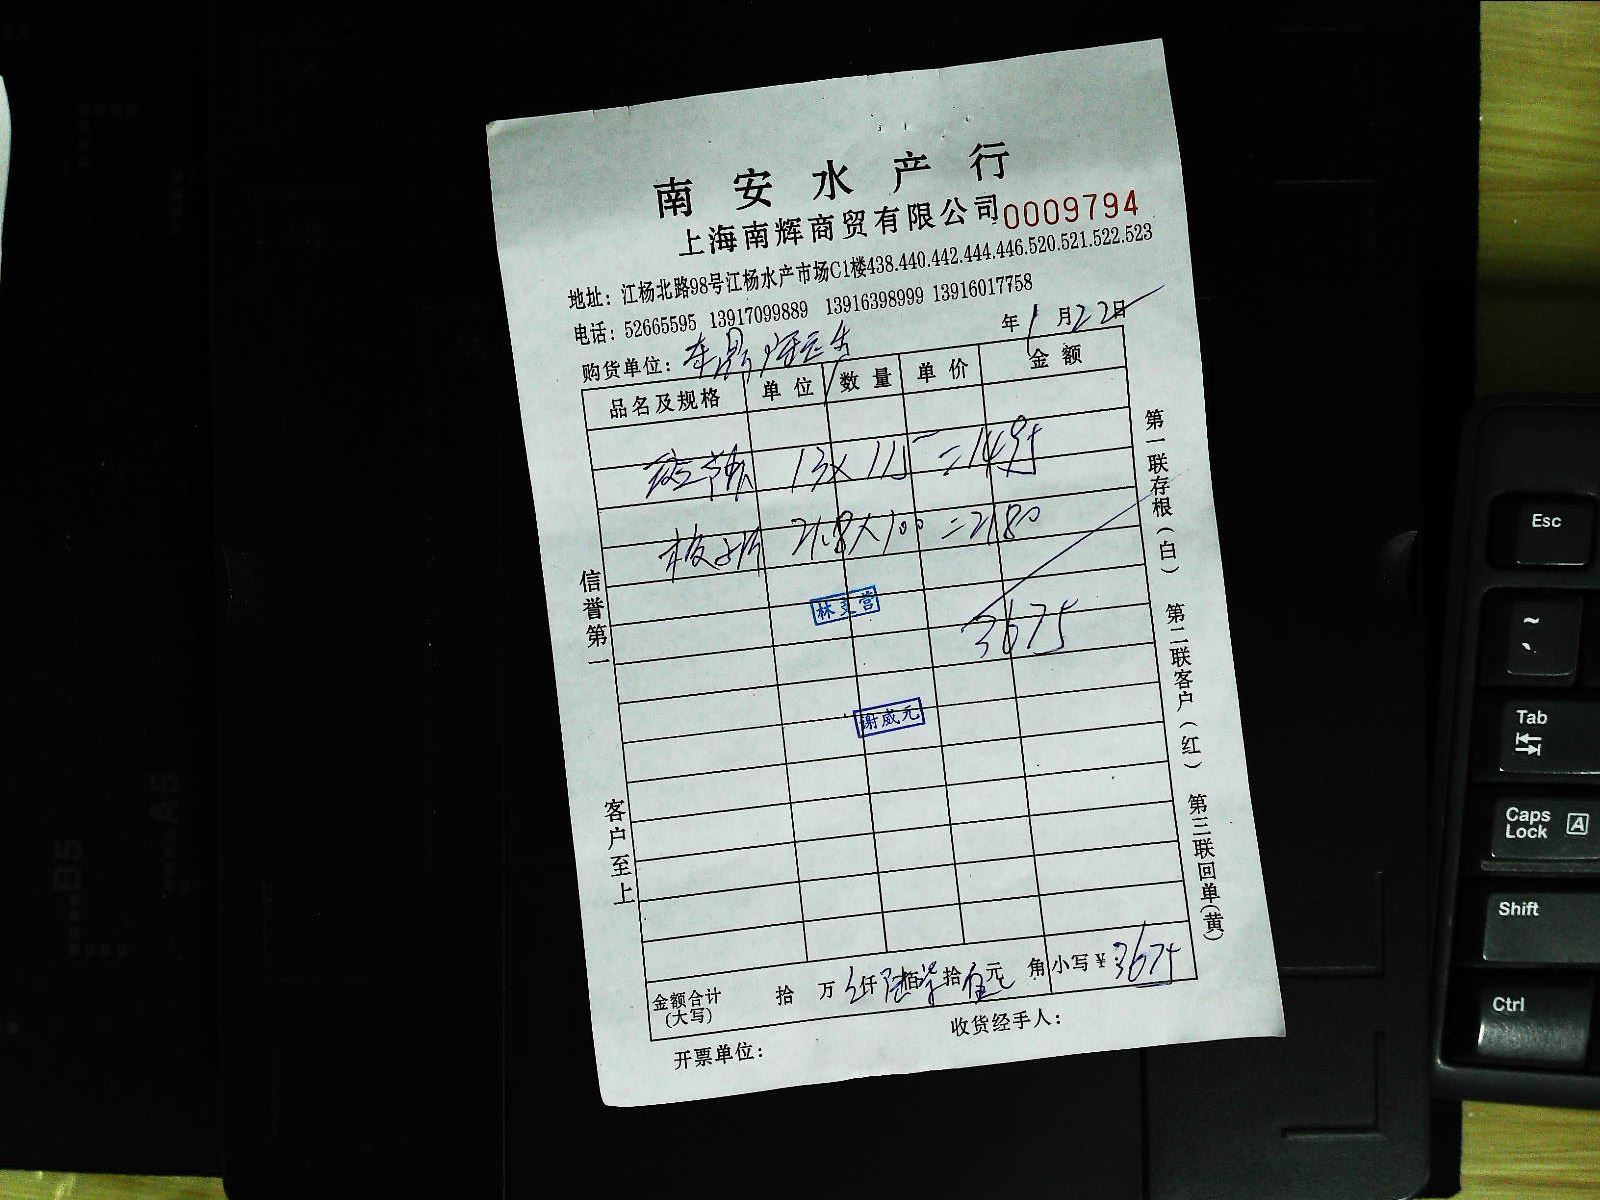 南安水产行
上海南辉商贸有限公司 0009794
地址：江杨北路98号江杨水产市场C1楼438.440.442.444.446.520.521.522.523
电话：52665595 13917099889 13916398999 13916017758
年1月22日
购货单位：
品名及规格 单位 数量 单价 金额
13×115=1495
板 21.8×100=2180
林 营
3675
谢威元
信誉第一
客户至上
第一联存根（白） 第二联客户（红） 第三联回单（黄）
金额合计 拾 万 仟 陆佰柒拾伍元 角 小写¥3675
（大写）
收货经手人：
开票单位：
B5
A5
Esc
~
Tab
Caps Lock A
Shift
Ctrl